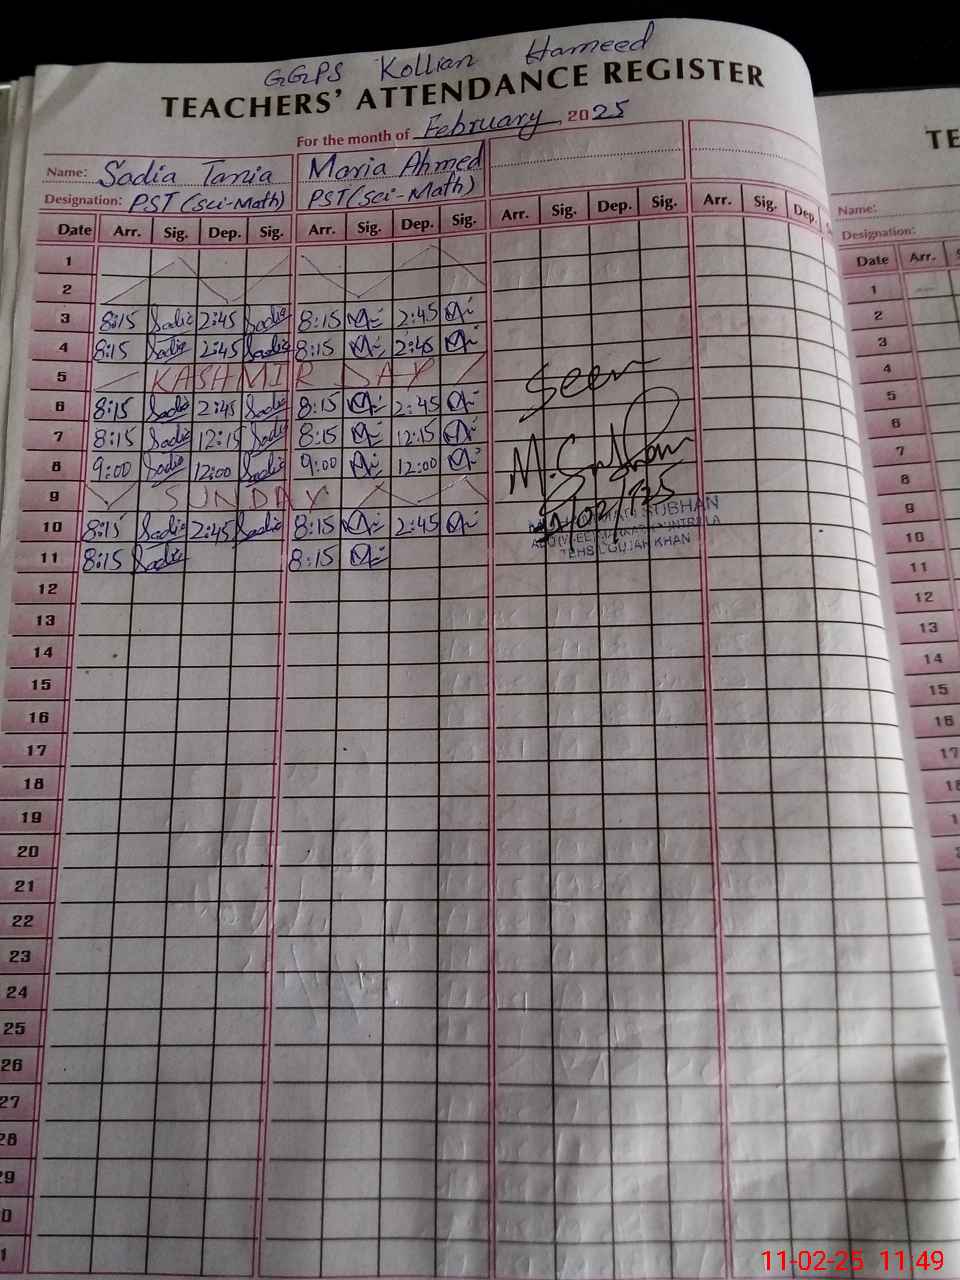 GGPS Kollian Hameed
TEACHERS' ATTENDANCE REGISTER
For the month of February, 2025
Name: Sadia Tania Maria Ahmed
Designation: PST (Sci-Math) PST (Sci-Math)
Date Arr. Sig. Dep. Sig. Arr. Sig. Dep. Sig. Arr. Sig. Dep. Sig. Arr. Sig. Dep.
1
2
3 8:15 Sadia 2:45 Sadia 8:15 2:45
4 8:15 Sadia 2:45 Sadia 8:15 2:45
5 KASHMIR DAY
6 8:15 Sadia 2:45 Sadia 8:15 2:45
7 8:15 Sadia 12:15 Sadia 8:15 12:15
8 9:00 Sadia 12:00 Sadia 9:00 12:00
9 SUNDAY
10 8:15 Sadia 2:45 Sadia 8:15 2:45
11 8:15 Sadia 8:15
12
13
14
15
16
17
18
19
20
21
22
23
24
25
26
27
28
29
0
1
Seen
SUBHAN
KHAN
TE
Name:
Designation:
Date Arr. S
1
2
3
4
5
6
7
8
9
10
11
12
13
14
15
16
17
18
11-02-25 11:49